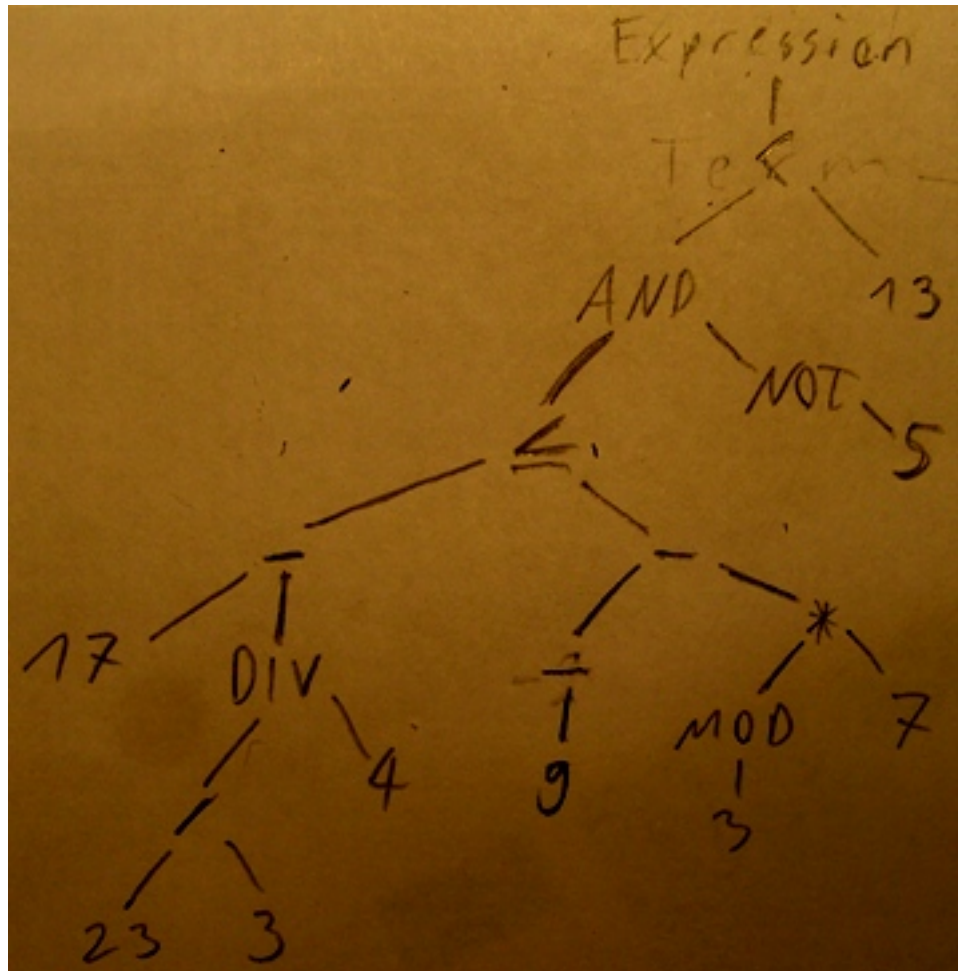 Expression
Term
<
AND 13
NOT
≤ 5
- -
17 DIV - *
4 9 MOD 7
/ 3
23 3